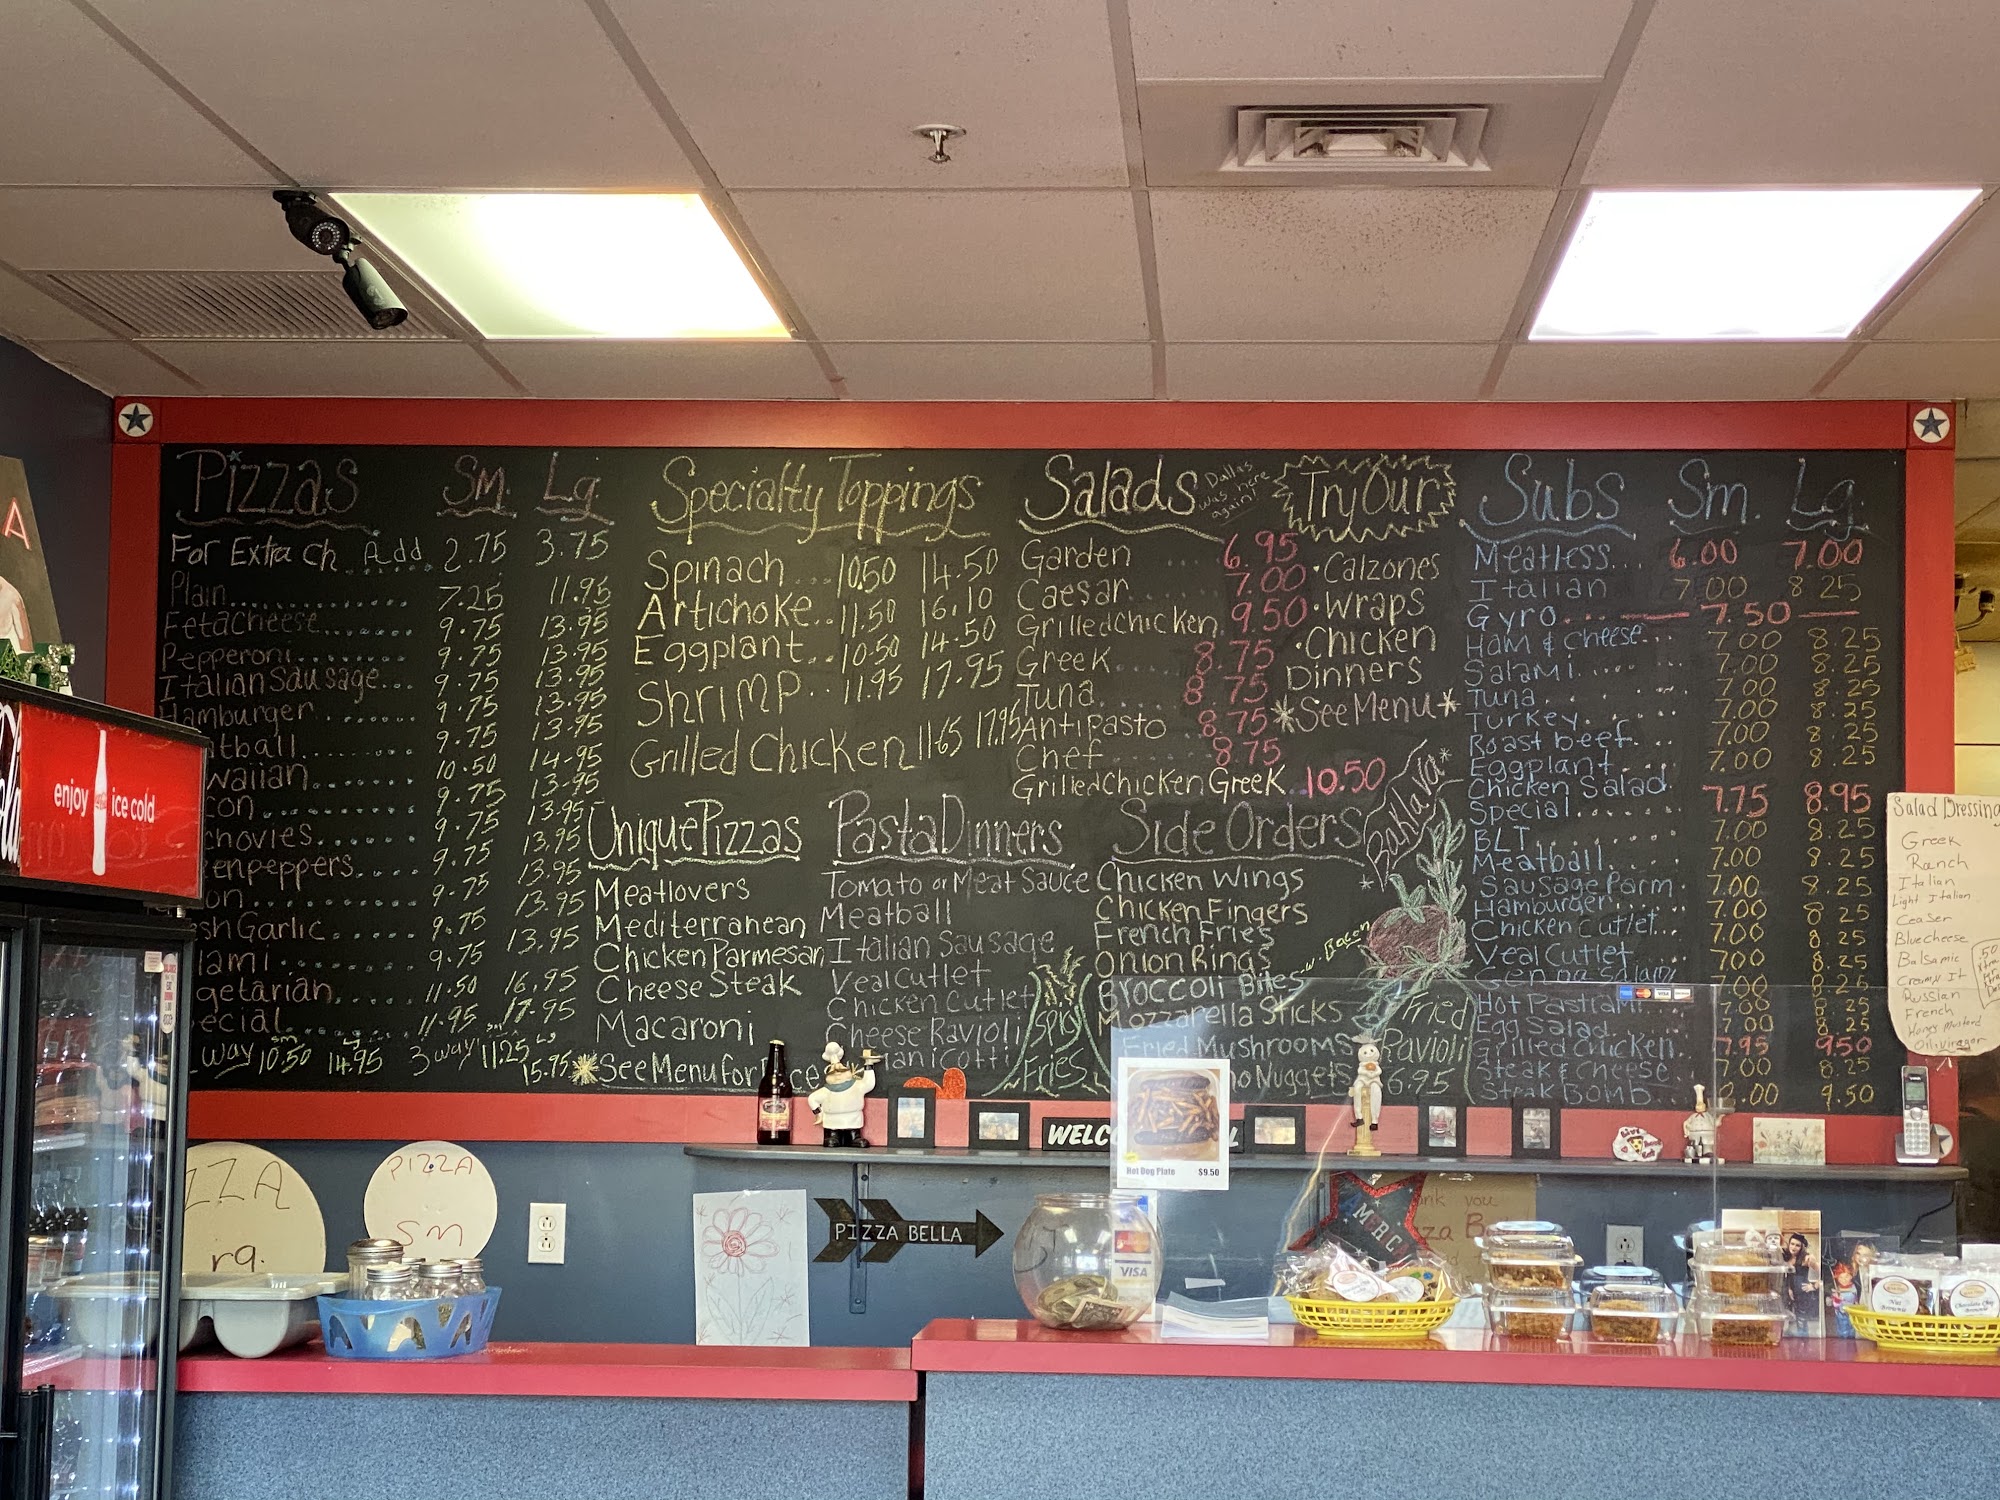 Pizzas Sm. Lg.
For Extra Ch. Add 2.75 3.75
Plain 7.25 11.95
Fetacheese 9.75 13.95
Pepperoni 9.75 13.95
Italian Sausage 9.75 13.95
Hamburger 9.75 13.95
atball 10.50 14.95
waiian 9.75 13.95
con 9.75 13.95
chovies 9.75 13.95
enpeppers 9.75 13.95
on 9.75 13.95
sh Garlic 9.75 13.95
ami 9.75 13.95
getarian 11.50 16.95
ecial 11.95 17.95
way sm 10.50 14.95 3 way sm 11.25 Lg 15.95
Specialty Toppings
Spinach 10.50 14.50
Artichoke 11.50 16.10
Eggplant 10.50 14.50
Shrimp 11.95 17.95
Grilled Chicken 11.65 17.95
Unique Pizzas
Meatlovers
Mediterranean
Chicken Parmesan
Cheese Steak
Macaroni
See Menu for
Pasta Dinners
Tomato or Meat Sauce
Meatball
Italian Sausage
Veal Cutlet
Chicken Cutlet
Cheese Ravioli
anicotti
Spicy
Fries
Salads
Dallas
was here
again!
Garden 6.95
Caesar 7.00
Grilled chicken 9.50
Greek 8.75
Tuna 8.75
Antipasto 8.75
Chef 8.75
Grilled Chicken Greek 10.50
Try Our
•Calzones
•Wraps
•Chicken
Dinners
*See Menu*
Side Orders
Chicken Wings
Chicken Fingers
French Fries
Onion Rings
Broccoli Bites w. Bacon
Mozzarella Sticks
Fried Mushrooms
no Nuggets
*Baklava*
Fried
Ravioli
6.95
Subs Sm. Lg.
Meatless... 6.00 7.00
Italian 7.00 8.25
Gyro... 7.50
Ham & cheese... 7.00 8.25
Salami 7.00 8.25
Tuna 7.00 8.25
Turkey 7.00 8.25
Roast beef 7.00 8.25
Eggplant 7.00 8.25
Chicken Salad 7.75 8.95
Special 7.00 8.25
BLT 7.00 8.25
Meatball 7.00 8.25
Sausage Parm 7.00 8.25
Hamburger 7.00 8.25
Chicken Cutlet 7.00 8.25
Veal Cutlet 7.00 8.25
Genoa Salami 7.00 8.25
Hot Pastrami
Egg Salad 7.00 8.25
Grilled Chicken 7.95 9.50
Steak & Cheese 7.00 8.25
Steak BOMB 9.50
Salad Dressing
Greek
Ranch
Italian
Light Italian
Ceaser
Bluecheese
Balsamic
Creamy It
Russian
French
Honey Mustard
Oil Vinegar
.50
A
enjoy ice cold
WELC
Hot Dog Plate $9.50
ZZA
rg.
PIZZA
Sm
PIZZA BELLA
VISA
MERC
nk you
zza B